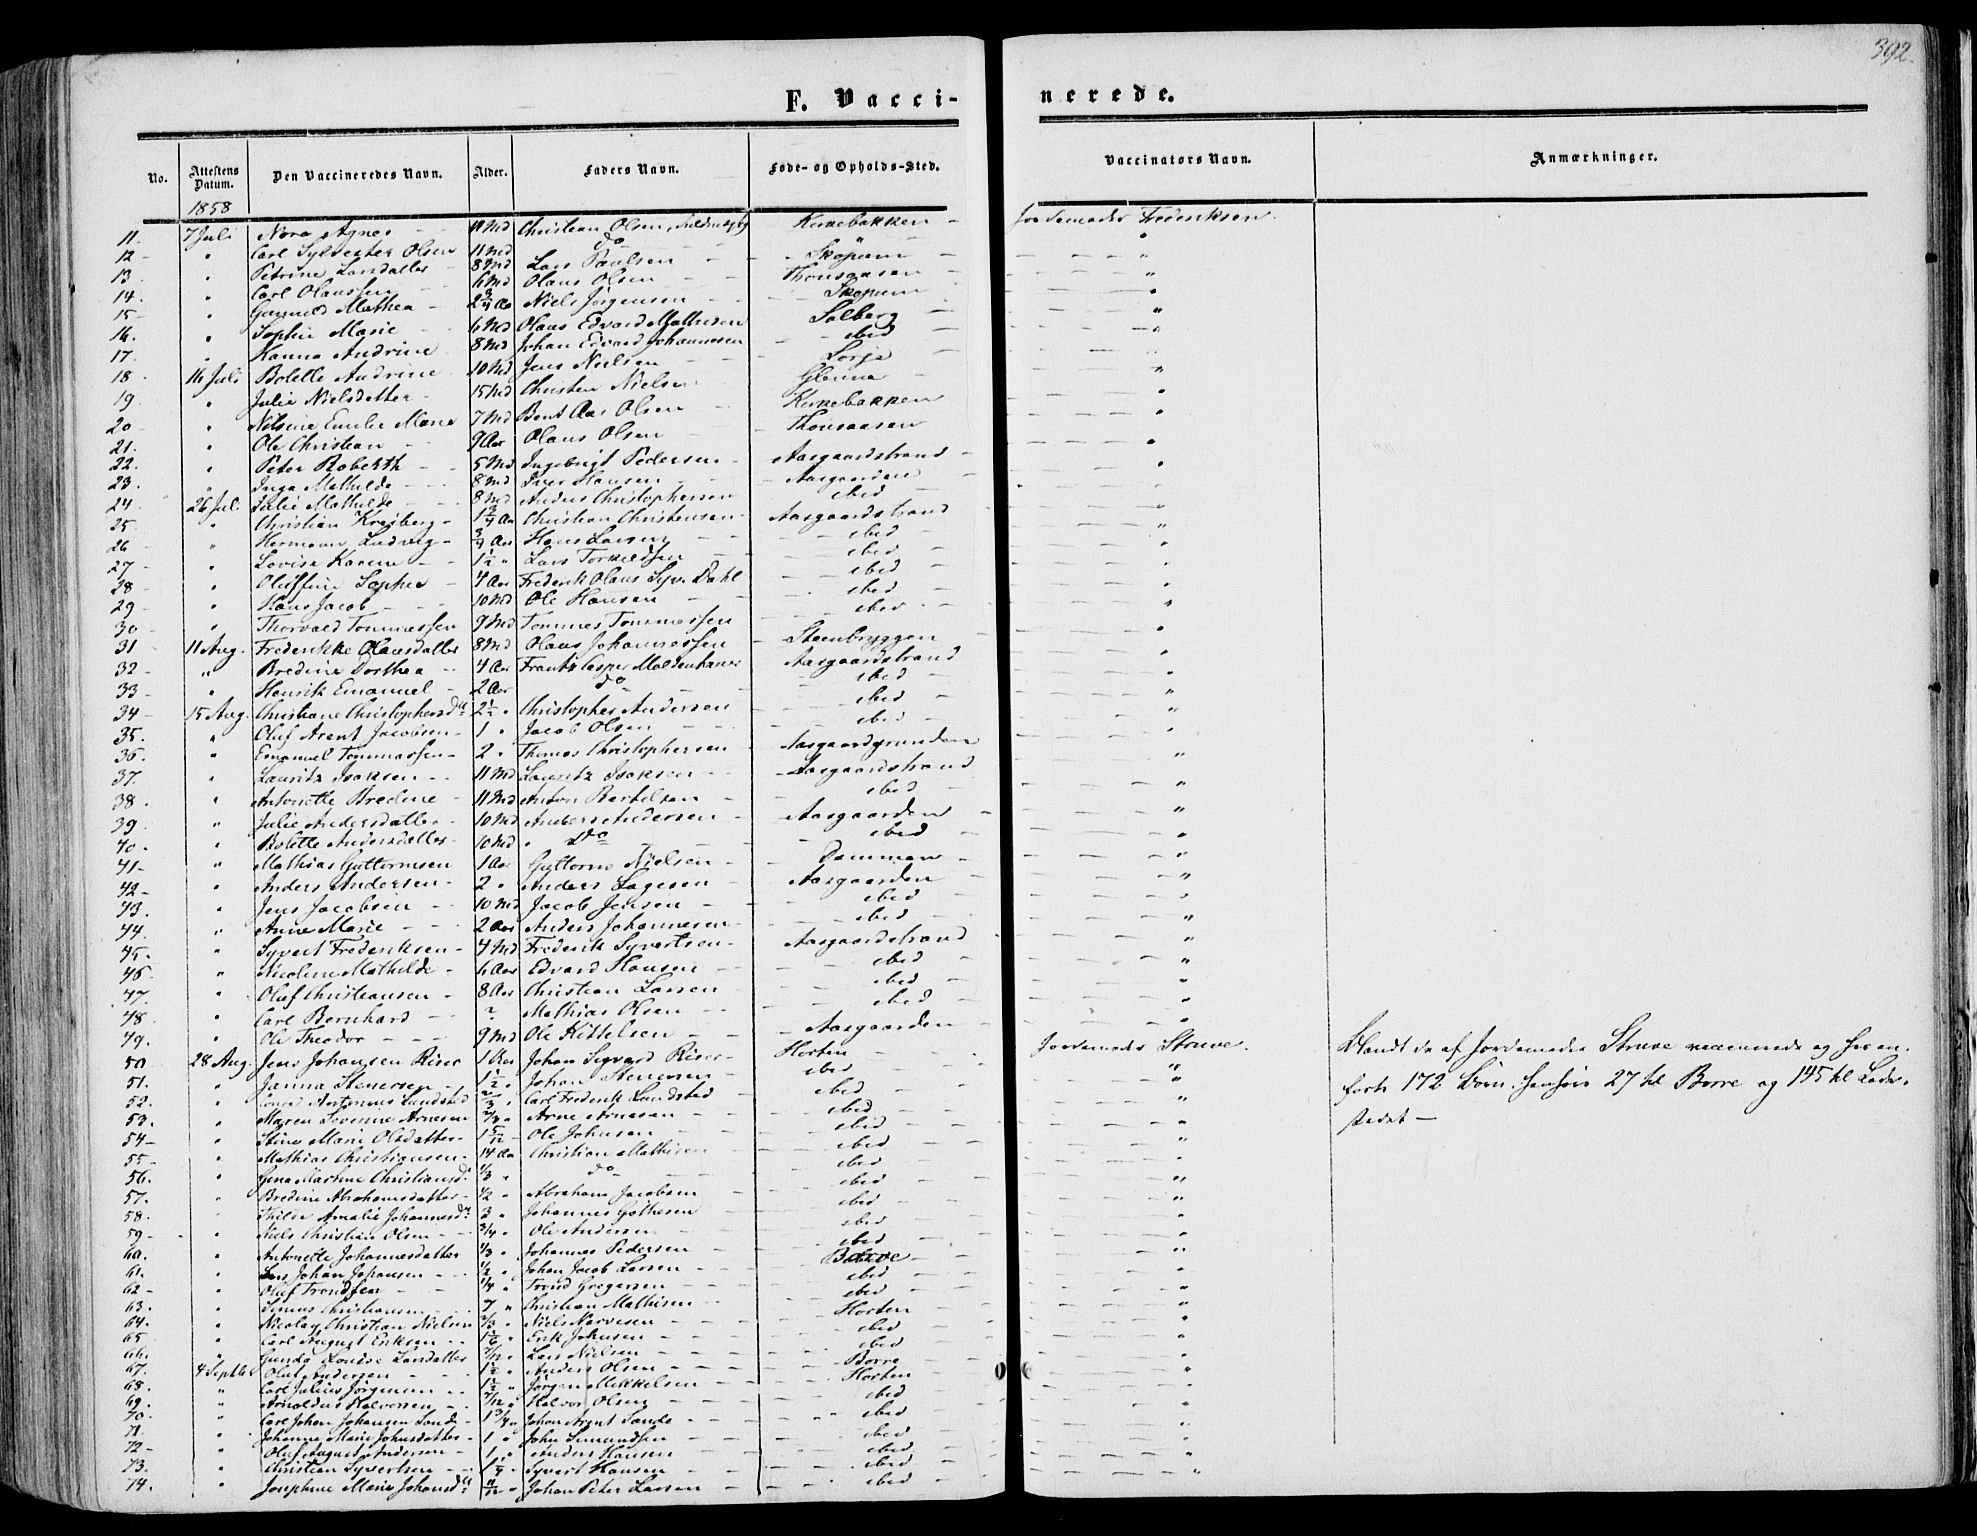 392.
F. Vaccinerede.
No. Attestens Datum. Den Vaccineredes Navn. Alder. Faders Navn. Føde- og Opholds-Sted. Vaccinators Navn. Anmærkninger.
1858
11 - 7 Juli Nora Agnes - - Md Christian Olsen, Kirkebakken - Jordemoder Frederiksen.
12 - " Carl Sylvester Olsen 11 Md do - Skopum - "
13 - " Petrine Larsdatter 8 Md Lars Paulsen - - Thonsaasen - "
14. " Carl Olaussen - 6 Md Olaus Olsen - - Skopum - "
15 - " Mathea - 2 3/4 Aar Niels Jørgensen - - Solberg - "
16. " Sophie Marie - 6 Md Olaus Edvard Mathisen - ibid - "
17. " Hanna Andrine 8 Md Johan Edvard Johannesen "
18 - 16 Juli Bolette Andrine 10 Md Jens Nielsen - "
19. " Julie Nielsdatter - 15 Md Christen Nielsen "
20 - " Nilsine Emilie Marie 7 Md Bent Aas Olsen - Kirkebakken "
21. " Ole Christian - 9 Aar Olaus Olsen - Thonsaasen "
22. " Peter Roberth - - 5 Md Ingebrigt Pedersen - Aasgaardstrand - "
23. " Inga Mathilde - - 8 Md Iver Hansen - - Aasgaarden - "
24 - 26 Jul. Julie Mathilde - 8 Md Anders Christophersen - ibid - "
25 - " Christian Kreiberg - 1 3/4 Aar Christian Christensen - Aasgaardstrand - "
26 - " Hermann Ludvig - 3/4 Aar Hans Larsen - - ibid "
27 - " Lovise Karine - 1 1/2 " Lars Torkildsen - ibid - "
28 - " Oluffine Sophie - 4 Aar Frederik Olaus Syv. Dahl - ibid - "
29 - " Hans Jacob - - - 10 Md Ole Hansen - - ibid - "
30 - " Thorvald Tommessen 9 Md Tommes Tommessen - ibid - "
31 11 Aug. Frederikke Olausdatter 8 Md Olaus Johannessen - Steenbryggen - "
32 - " Bredine Dorthea - 4 Aar Frantz Casper Moldenhauer Aasgaardstrand - "
33 - " Henrik Emanuel - 2 Aar do - ibid - "
34 - 15 Aug. Christiane Christophersdtr 2 1/2 " Christopher Andersen - ibid - "
35. " Oluf Arent Jacobsen - 1 " Jacob Olsen - - ibid - "
36. " Emanuel Tommassen - 2 " Thomas Christophersen - Aasgaardgrunden "
37. " Lauritz Isaksen - - 11 Md Lauritz Isaksen - - Aasgaardstrand - "
38. " Antonette Bredine - 11 Md Anton Bertelsen - - ibid - "
39. " Julie Andersdatter - 10 Md Anders Andersen - - Aasgaarden - "
40. " Bolette Andersdatter 10 Md " Do - ibid - "
41 - " Mathias Guttormsen 1 Aar Guttorm Nielsen - - Dammen - "
42 - " Anders Andersen - 2 " Anders Lagesen - - Aasgaarden - "
43. " Jens Jacobsen - - 10 Md Jacob Jensen - - ibid - "
44. " Anne Marie - - - 2 Aar Anders Johannesen - - ibid - "
45. " Syvert Frederiksen - 4 Md Frederik Syvertsen - Aasgaardstrand "
46 - " Nicoline Mathilde - 6 Aar Edvard Hansen - - ibid - "
47. " Oluf Christiansen - 8 Aar Christian Larsen - - ibid - "
48 " Carl Bernhard - - ? Mathias Olsen - - ibid - "
49. " Ole Theodor - - - 9 Md Ole Kittelsen - - Aasgaarden - "
50 28 Aug. Jens Johansen Riser 1 Aar Johan Sigvard Riser - Horten - Jordemoder Struve. Blandt de af Jordemoder Struve vaccinerede og her an-
51. " Janna Stenersen - 1 1/2 " Johan Stenersen - ibid - " førte 172 Børn henhøre 27 til Borre og 145 til Lade-
52. " Antonius Lundsted 2/3 " Carl Frederik Lundsted - ibid - " stedet -
53. " Maren Severine Arnesen " Arne Arnesen - - ibid - "
54 - " Stine Marie Olsdatter - 1 5/12 - Ole Johnsen - - ibid - "
55 - " Mathias Christiansen - 14 Aar Christian Mathisen - ibid - "
56. " Gina Martine Christiansd. 1/3 " do - ibid - "
57. " Bredine Abrahamsdatter - 1/2 " Abraham Jacobsen - ibid - "
58. " Hilda Amalie Johannesdtr " Johannes Gothesen - ibid - "
59 - " Niels Christian Olsen - - 3/4 " Ole Andersen - - ibid - "
60. " Antonette Johannesdatter 1/3 " Johannes Pedersen - - ibid - "
61. " Johan Johansen - - 1/2 " Johan Jacob Larsen - - Borre - "
62 - " Oluf Trondsen - - 1/4 " Trond Gregersen - - ibid - "
63. " Christiansen - - 7 " Christian Mathisen - - ibid - "
64. " Nicolay Christian Nielsen 2/3 " Niels Narvesen - - Horten - "
65 - " Carl August Eriksen - - 1 1/6 " Erik Johnsen - - ibid - "
66. " Gunda Lovise Larsdatter 7/12 " Lars Nielsen - - ibid - "
67. 4 Septbr Oluf Andersen - - 1 1/2 " Anders Olsen - - Borre - "
68. " Carl Julius Jørgensen - - 1 1/2 " Jørgen Mikkelsen - - Horten - "
69. " Arnoldus Halvorsen - - 7/12 " Halvor Olsen - - ibid - "
70. " Carl Johan Johansen Sande - 1 3/4 " Johan Arent Sande - - ibid - "
71. " Johanne Marie Johnsdatter - 1 " John Simundsen - - ibid - "
72 - " Oluf August Andersen - 1 " Anders Hansen - - ibid - "
73. " Christian Syvertsen - - 1 1/4 - Syvert Hansen - - ibid - "
74. " Josephine Marie Johansdtr 11/12 " Johan Peter Larsen - - ibid - "